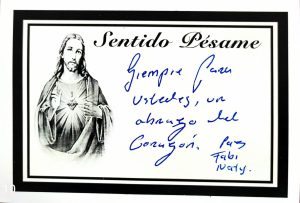 Sentido Pésame
Siempre Para
ustedes, un
abrazo del
Corazón.
Fabi
Naty.